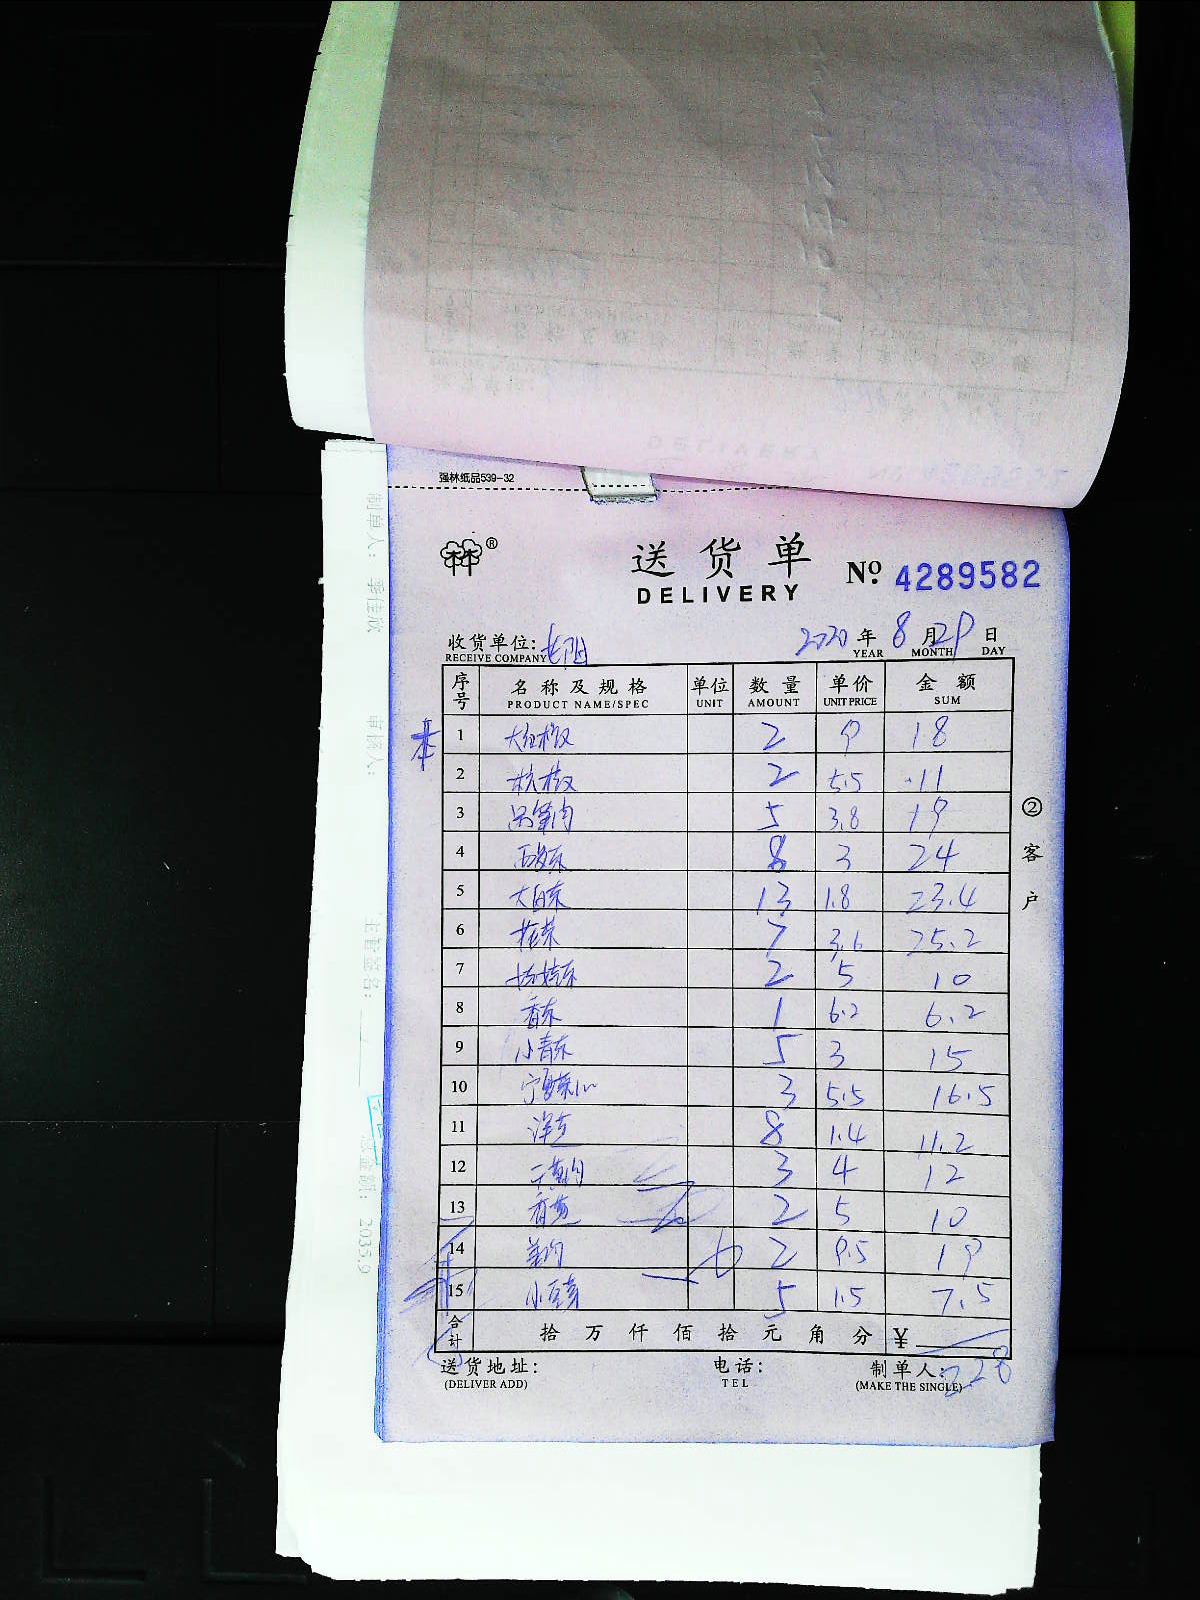 强林纸品539-32
林林®
送货单 № 4289582
DELIVERY
收货单位: 2020年8月29日
RECEIVE COMPANY YEAR MONTH DAY
序号 名称及规格 单位 数量 单价 金额
PRODUCT NAME/SPEC UNIT AMOUNT UNIT PRICE SUM
1 大红椒 2 9 18
2 杭椒 2 5.5 11
3 5 3.8 19
4 8 3 24
5 大白菜 13 1.8 23.4
6 7 3.6 25.2
7 娃娃菜 2 5 10
8 香菜 1 6.2 6.2
9 小青菜 5 3 15
10 宁夏菜心 3 5.5 16.5
11 洋芋 8 1.4 11.2
12 3 4 12
13 2 5 10
14 2 9.5 19
15 小豆芽 5 1.5 7.5
合计 拾万仟佰拾元角分 ¥
228
送货地址: 电话: 制单人:
(DELIVER ADD) TEL (MAKE THE SINGLE)
②客户
制单人: 李佳欣
审核人:
主管签名:
总金额: 2035.9